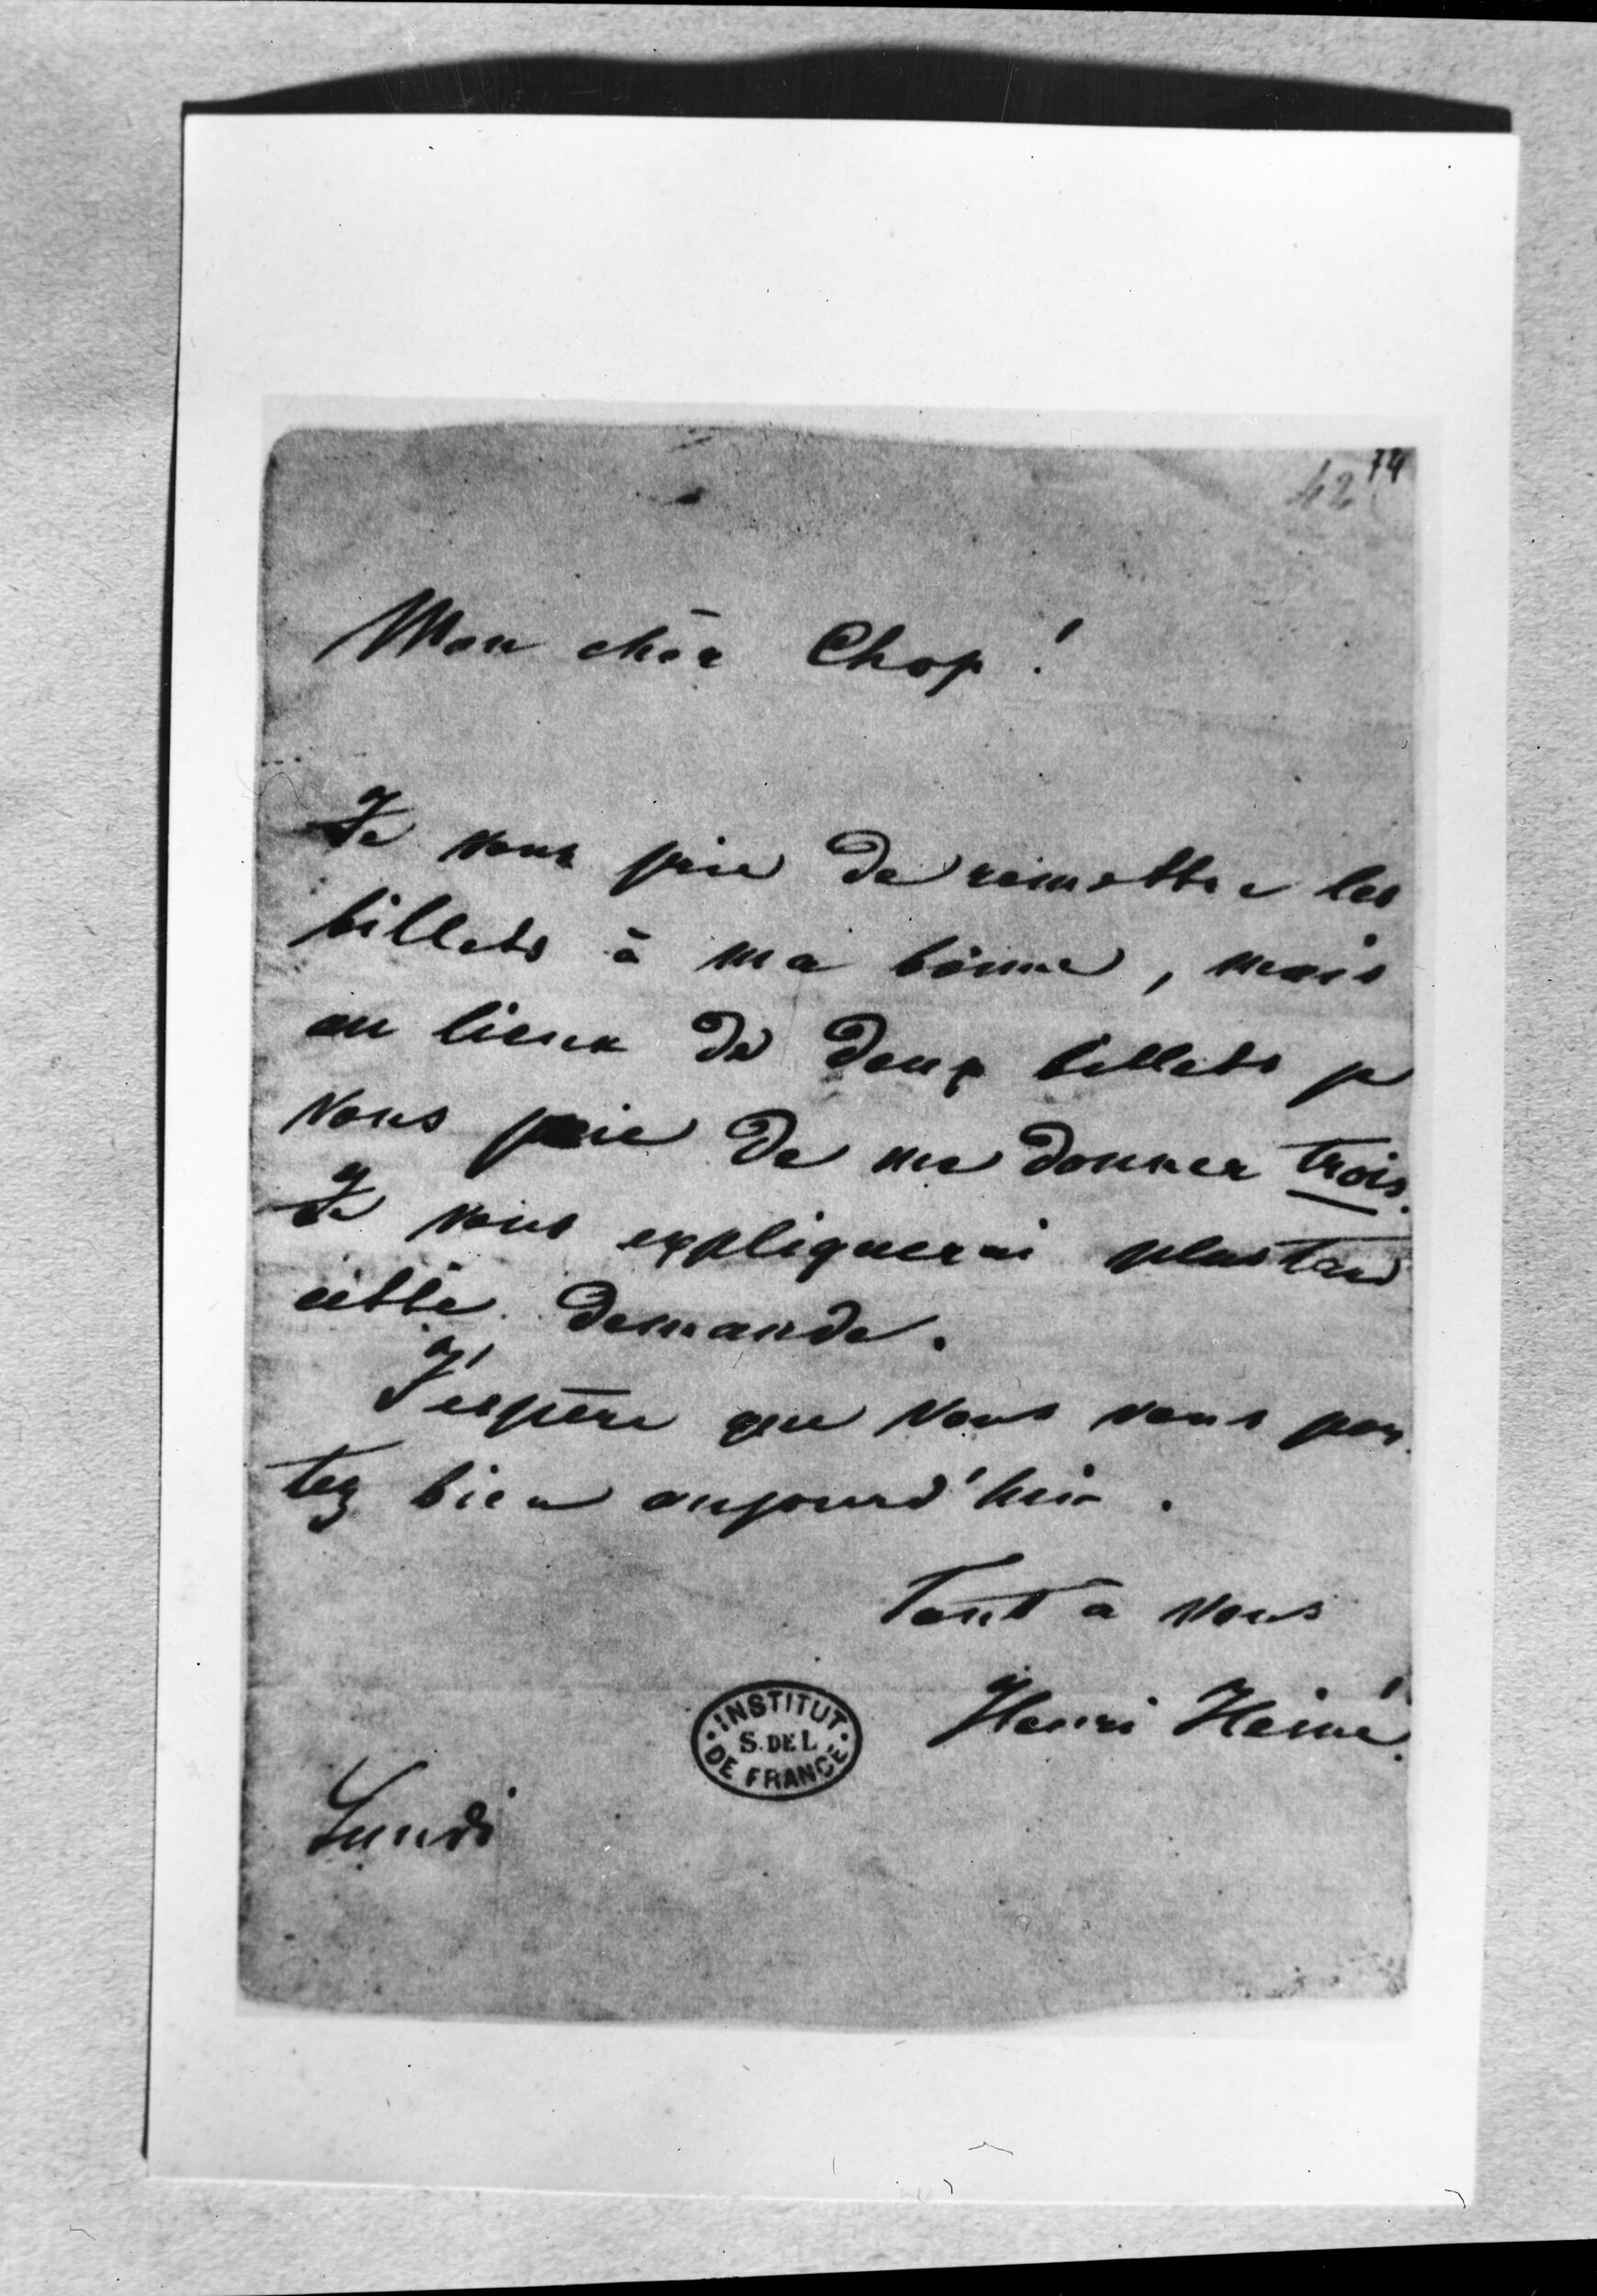 42 74
Mon chèr Chop !
Je vous prie de remettre les
billets à ma bonne, mais
au lieux de deux billets je
vous prie de me donner trois.
Je vous expliquerai plus tard
cette demande.
J'espère que vous vous por-
tez bien aujourd'hui.
Tout à vous
Henri Heine.
INSTITUT
S. DE L.
DE FRANCE
Lundi